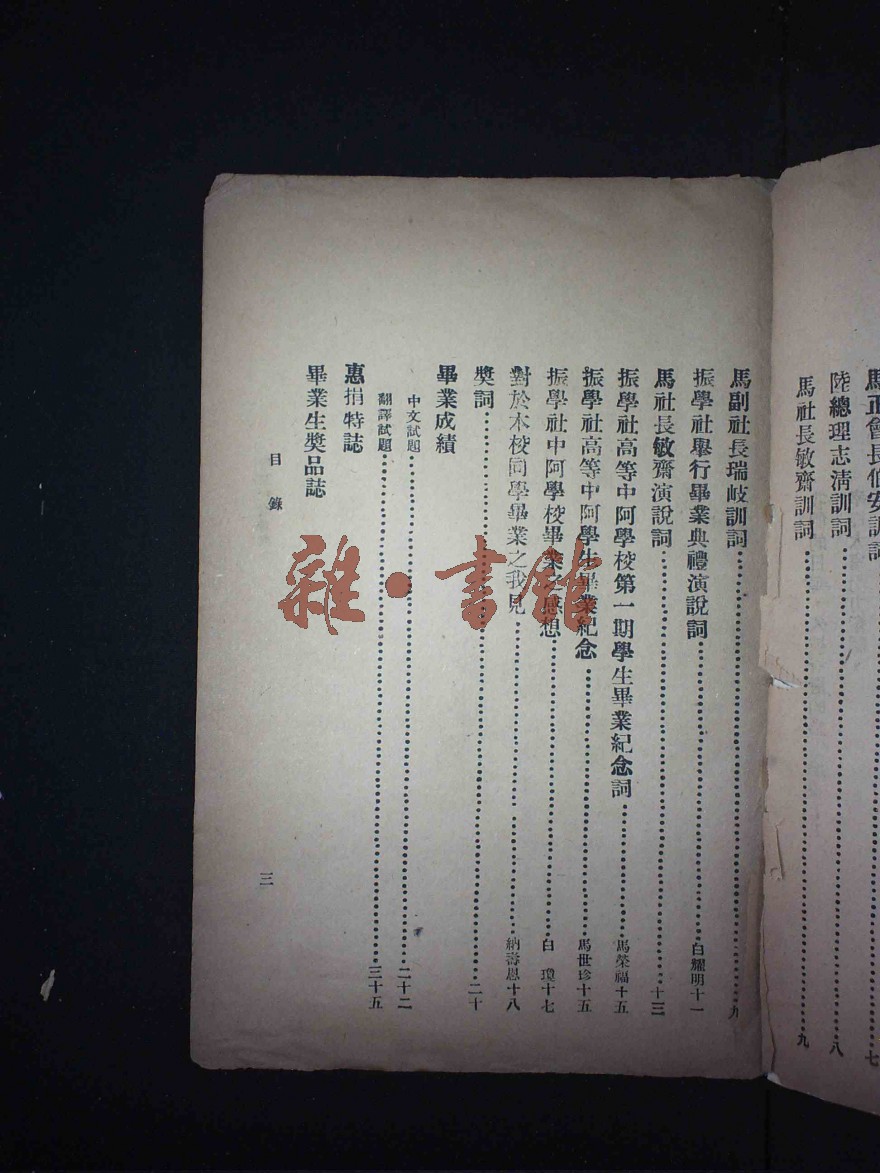 馬正會長伯安訓詞……七
陸總理志清訓詞……八
馬社長敏齋訓詞……九
馬副社長瑞岐訓詞……九
振學社舉行畢業典禮演說詞……白耀明十一
馬社長敏齋演說詞……十三
振學社高等中阿學校第一期學生畢業紀念詞……馬榮福十五
振學社高等中阿學生畢業紀念……馬世珍十五
振學社中阿學校畢業之感想……白 瓊十七
對於本校同學畢業之我見……納壽恩十八
獎詞……二十
畢業成績
中文試題……二十二
翻譯試題……三十五
惠捐特誌
畢業生獎品誌
目錄
三
雜·書館